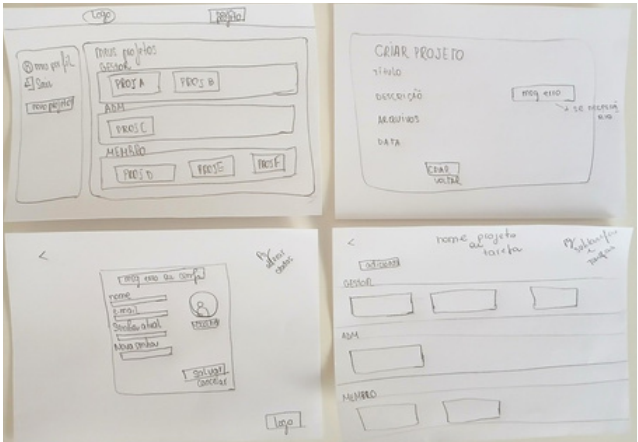 Logo
projeto
meus projetos
GESTOR
meu perfil
Sair
novo projeto
PROJ A
PROJ B
ADM
PROJ C
MEMBRO
PROJ D
PROJ E
PROJ F
CRIAR PROJETO
TÍTULO
DESCRIÇÃO
msg erro
SE NECESSÁ
RIO
ARQUIVOS
DATA
CRIAR
VOLTAR
<
editar
dados
msg erro ou config
nome
E-mail
Senha atual
Nova senha
salvar
cancelar
Logo
<
nome projeto
ou
tarefa
GESTOR
ADM
MEMBRO